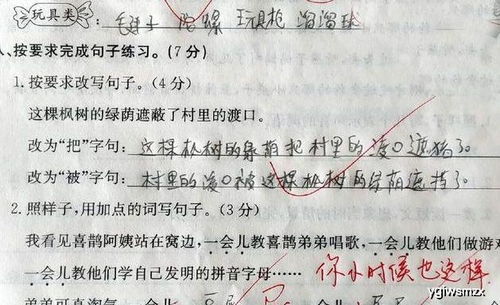 玩具类：毛毽子 陀螺 玩具枪 溜溜球
、按要求完成句子练习。(7分)
1. 按要求改写句子。(4分)
这棵枫树的绿荫遮蔽了村里的渡口。
改为“把”字句：这棵松树的绿荫把村里的渡口遮挡了。
改为“被”字句：村里的渡口被这棵松树的绿荫遮挡了。
2. 照样子,用加点的词写句子。(3分)
我看见喜鹊阿姨站在窝边,一会儿教喜鹊弟弟唱歌,一会儿教他们做游戏
一会儿教他们学自己发明的拼音字母…… 你小时候也这样
弟弟可真淘气 一会儿
ygiwsmzx